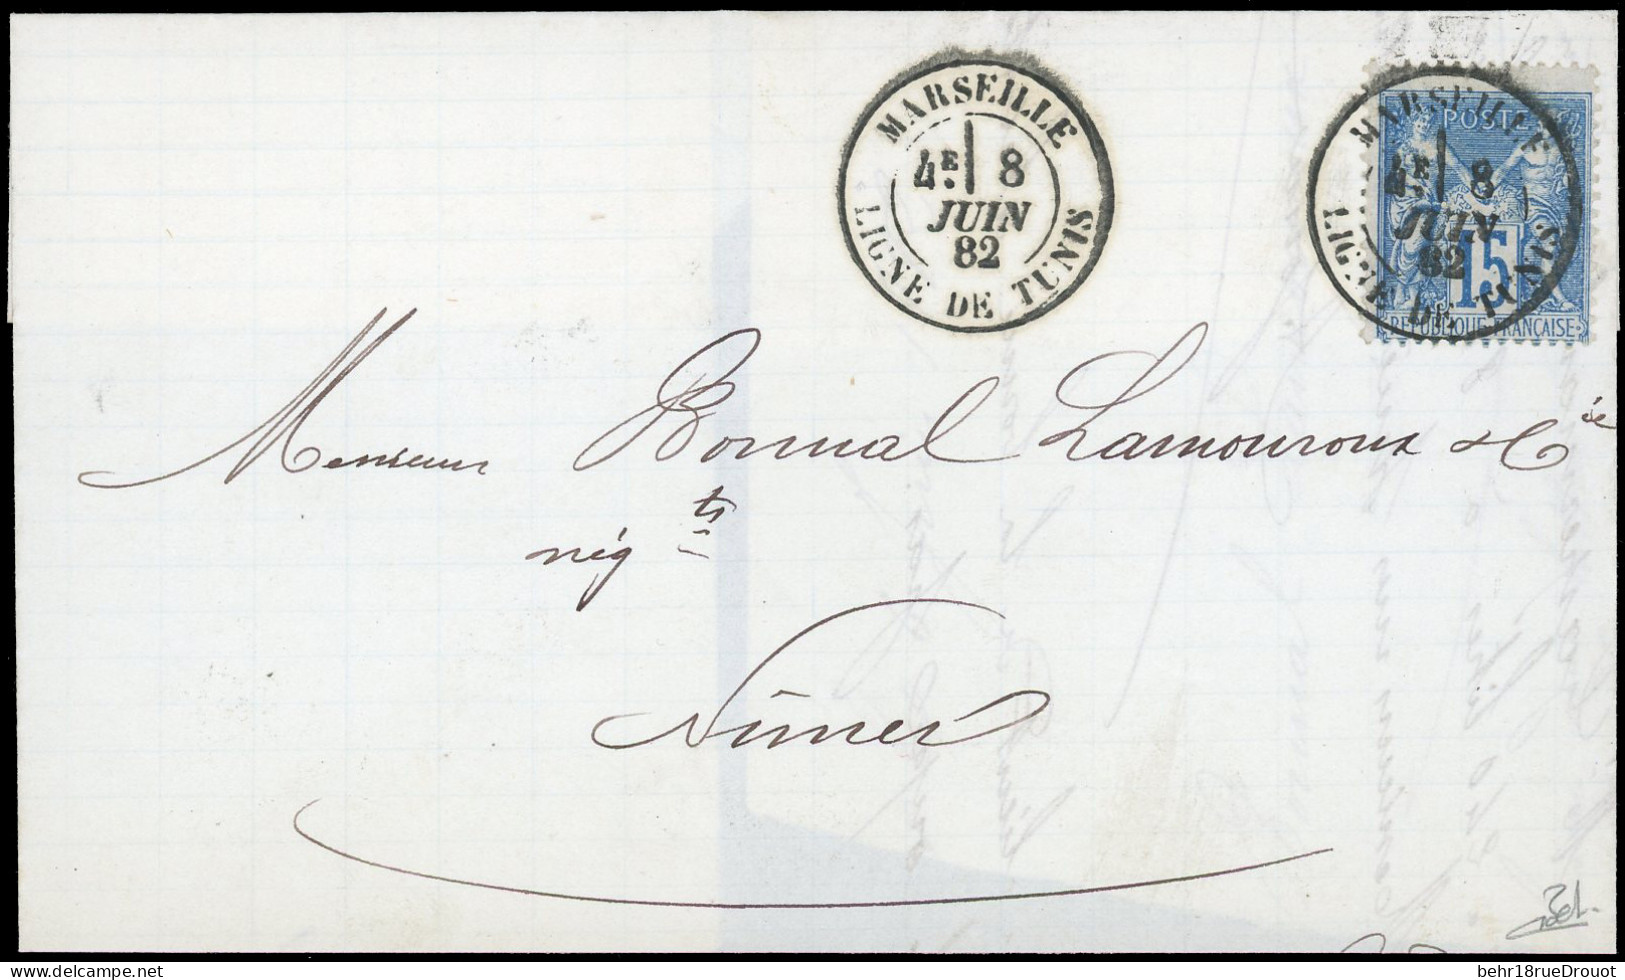 MARSEILLE
4E. 8
JUIN
82
LIGNE DE TUNIS
MARSEILLE
4E 8
JUIN
82
LIGNE DE TUNIS
POSTE
15
RÉPUBLIQUE FRANÇAISE
Messieurs Bonnal Lamouroux & Cie
négts
Nîmes
delcampe.net
behr18rueDrouot